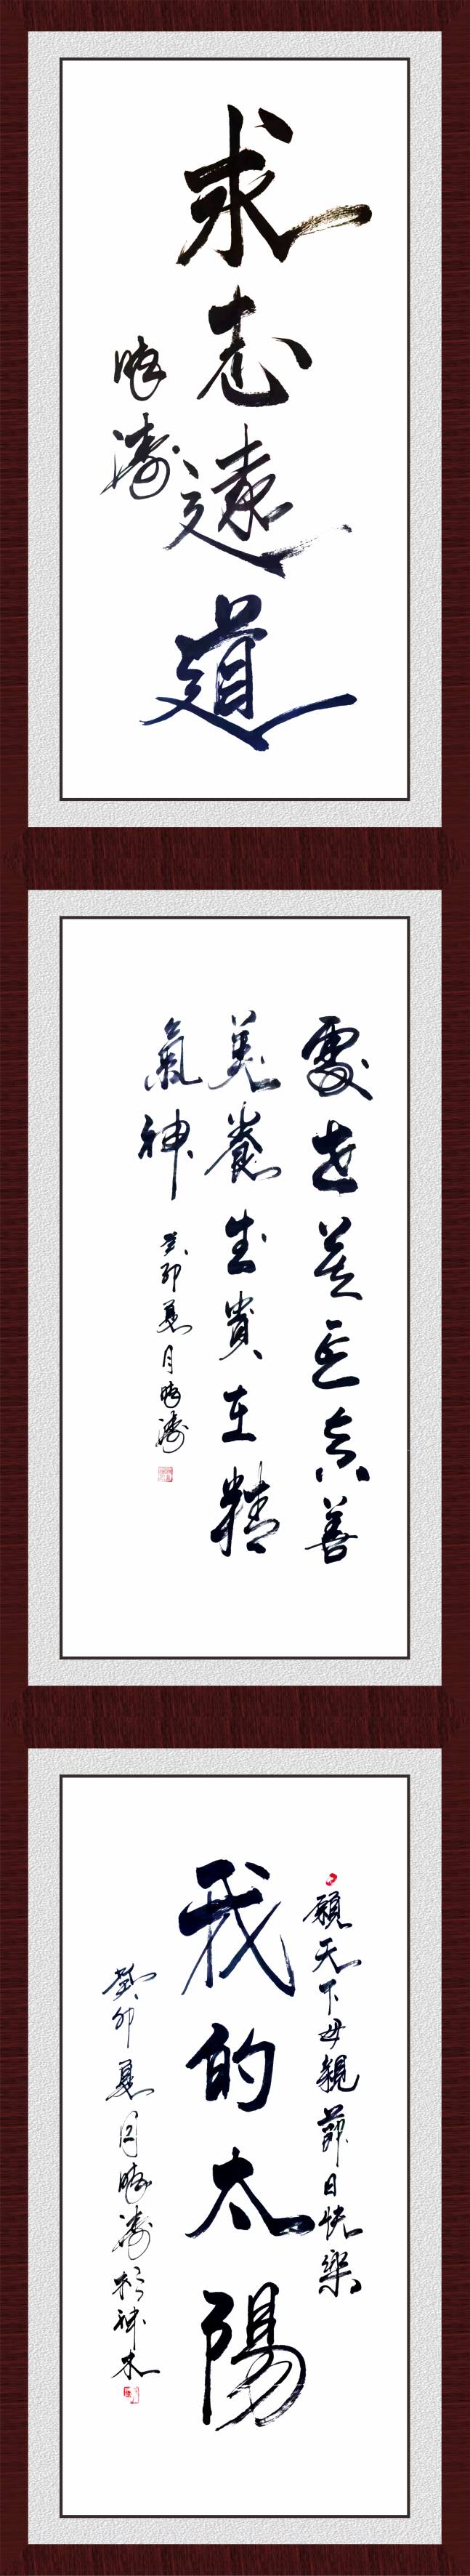 求志遠道
晓涛
處世莫忘真善
美養生貴在精
氣神
癸卯夏月晓涛
願天下母親節日快樂
我的太陽
癸卯夏月晓涛於神木